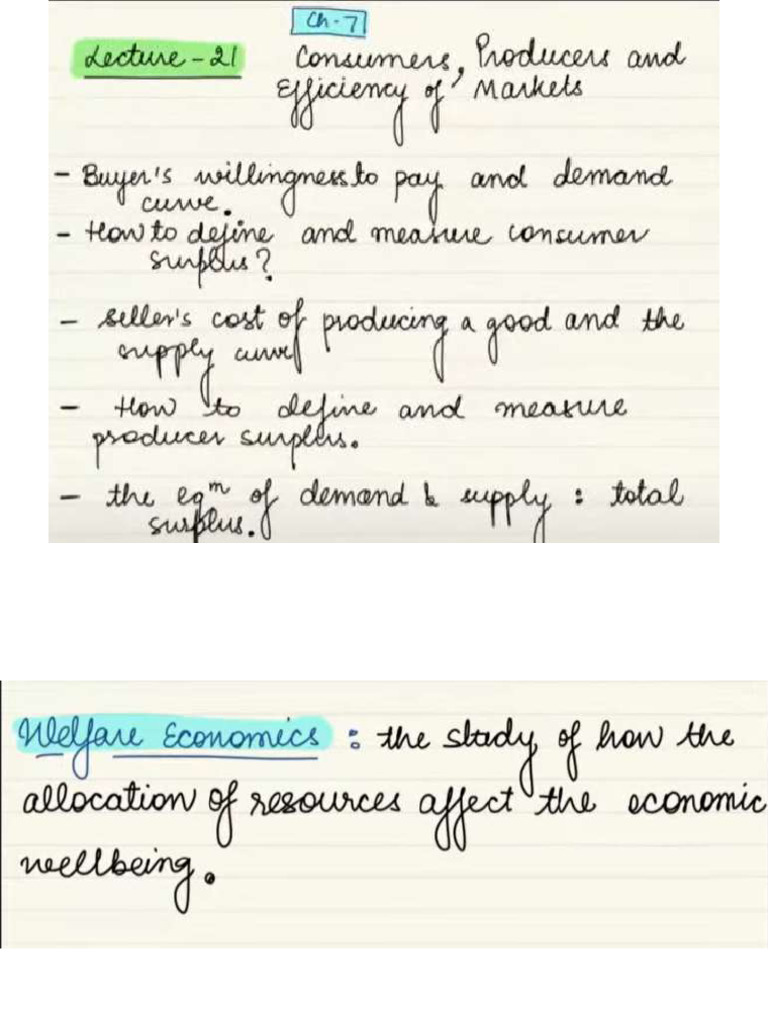 Ch-7
Lecture-21 Consumers, Producers and
Efficiency of Markets
- Buyer's willingness to pay and demand
curve.
- How to define and measure consumer
surplus?
- seller's cost of producing a good and the
supply curve
- How to define and measure
producer surplus.
- the eqm of demand & supply : total
surplus.
Welfare Economics : the study of how the
allocation of resources affect the economic
wellbeing.